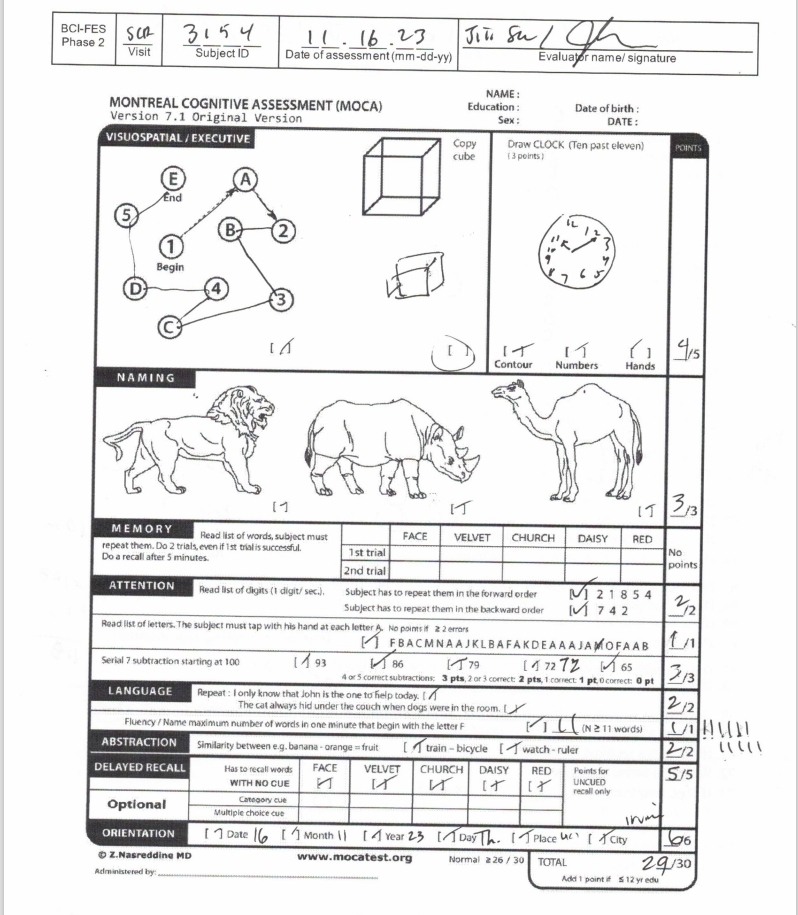 BCI-FES Phase 2
SCR
Visit
3154
Subject ID
11.16.23
Date of assessment (mm-dd-yy)
Evaluator name/ signature
MONTREAL COGNITIVE ASSESSMENT (MOCA)
Version 7.1 Original Version
NAME :
Education :
Sex :
Date of birth :
DATE :
VISUOSPATIAL / EXECUTIVE
Copy cube
Draw CLOCK (Ten past eleven)
(3 points)
POINTS
E
End
A
5
B
2
1
Begin
D
4
3
C
12 1 2 3 4 5 6 7 8 9 10 11
[ ] [ ] [ ] [ ] [ ]
Contour Numbers Hands
4/5
NAMING
[ ] [ ] [ ]
3/3
MEMORY
Read list of words, subject must repeat them. Do 2 trials, even if 1st trial is successful. Do a recall after 5 minutes.
FACE VELVET CHURCH DAISY RED
1st trial
2nd trial
No points
ATTENTION
Read list of digits (1 digit/ sec.).
Subject has to repeat them in the forward order [✓] 2 1 8 5 4
Subject has to repeat them in the backward order [✓] 7 4 2
2/2
Read list of letters. The subject must tap with his hand at each letter A. No points if ≥ 2 errors
[✓] F B A C M N A A J K L B A F A K D E A A A J A M O F A A B
1/1
Serial 7 subtraction starting at 100 [✓] 93 [✓] 86 [✓] 79 [✓] 72 72 [✓] 65
4 or 5 correct subtractions: 3 pts, 2 or 3 correct: 2 pts, 1 correct: 1 pt, 0 correct: 0 pt
3/3
LANGUAGE
Repeat : I only know that John is the one to help today. [✓]
The cat always hid under the couch when dogs were in the room. [✓]
2/2
Fluency / Name maximum number of words in one minute that begin with the letter F [✓] 11 (N ≥ 11 words)
1/1
ABSTRACTION
Similarity between e.g. banana - orange = fruit [✓] train – bicycle [✓] watch - ruler
2/2
DELAYED RECALL
Has to recall words WITH NO CUE
FACE VELVET CHURCH DAISY RED
[✓] [✓] [✓] [✓] [✓]
Points for UNCUED recall only
5/5
Optional
Category cue
Multiple choice cue
ORIENTATION
[✓] Date 16 [✓] Month 11 [✓] Year 23 [✓] Day Th. [✓] Place UCI [✓] City Irvine
6/6
© Z.Nasreddine MD
www.mocatest.org
Normal ≥ 26 / 30
TOTAL 29/30
Add 1 point if ≤ 12 yr edu
Administered by: